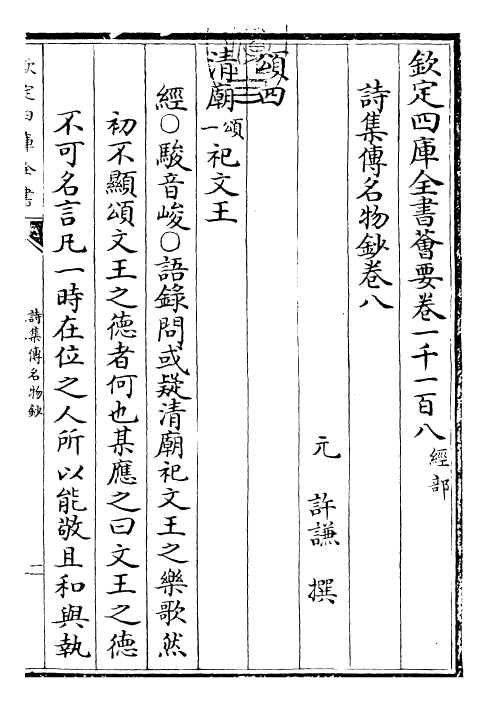 欽定四庫全書薈要卷一千一百八經部
詩集傳名物鈔卷八
元許謙撰
頌四
清廟一頌祀文王
經○駿音峻○語錄問或疑清廟祀文王之樂歌然
初不顯頌文王之德者何也某應之曰文王之德
不可名言凡一時在位之人所以能敬且和與執
欽定四庫全書
詩集傳名物鈔